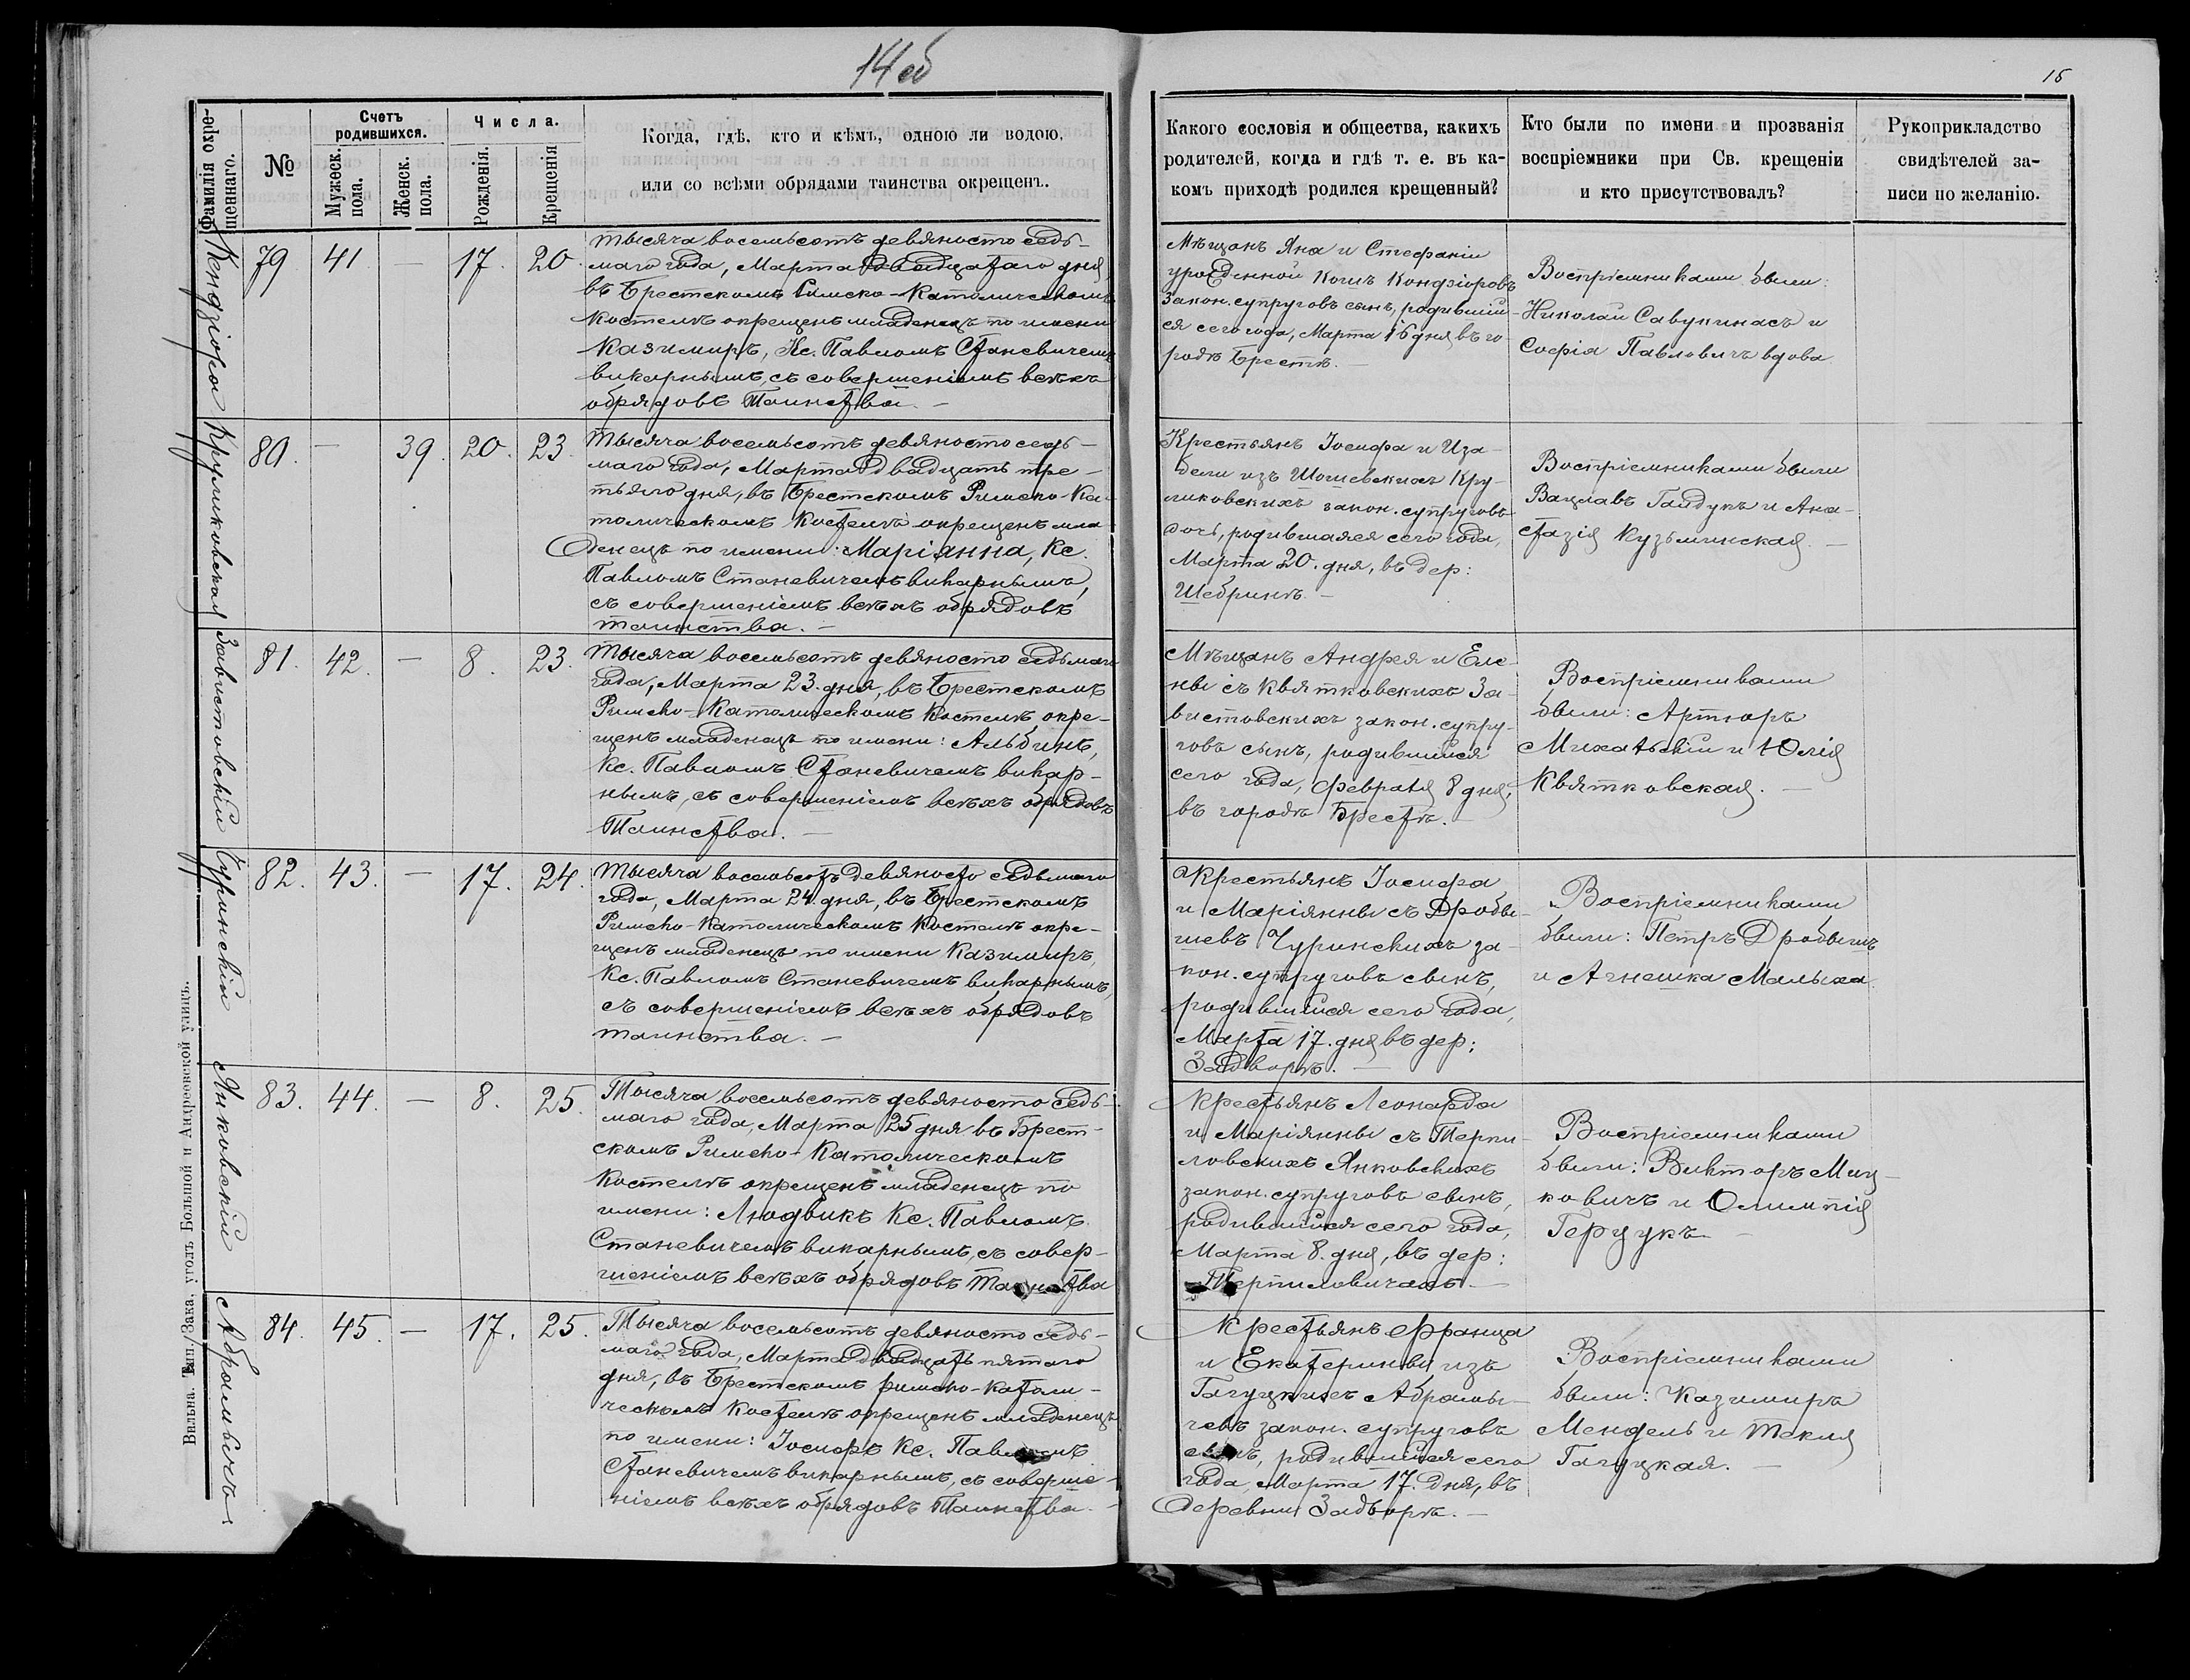 14 об
15
Фамилія окрещеннаго.
№
Счетъ родившихся.
Мужеск. пола.
Женск. пола.
Числа.
Рожденія.
Крещенія
Когда, гдѣ, кто и кѣмъ, одною ли водою,
или со всѣми обрядами таинства окрещенъ.
Какого сословія и общества, какихъ
родителей, когда и гдѣ т. е. въ ка-
комъ приходѣ родился крещенный?
Кто были по имени и прозванія
воспріемники при Св. крещеніи
и кто присутствовалъ?
Рукоприкладство
свидѣтелей за-
писи по желанію.
Кендзіора
79 41 — 17. 20.
тысяча восемьсотъ девяносто седь-
маго года, Марта двадцатаго дня
въ Брестскомъ Римско-Католическомъ
Костелѣ окрещенъ младенецъ по имени
Казимиръ, Кс. Павломъ Станевичемъ
викарнымъ, съ совершеніемъ всѣхъ
обрядовъ Таинства. —
Мѣщанъ Яна и Стефаніи
урожденной Кошъ Кондзіоровъ
Закон. супруговъ сынъ, родившій-
ся сего года, Марта 16 дня, въ го-
родѣ Брестѣ. —
Воспріемниками были:
Николай Савукинасъ и
Софія Павловичъ вдова
Круликовская
80. — 39. 20. 23.
Тысяча восемьсотъ девяносто седь-
маго года, Марта двадцать тре-
тьяго дня, въ Брестскомъ Римско-Ка-
толическомъ Костелѣ окрещенъ мла
денецъ по имени: Маріанна, Кс.
Павломъ Станевичемъ викарнымъ,
съ совершеніемъ всѣхъ обрядовъ
таинства. —
Крестьянъ Іосифа и Иза-
бели изъ Шошевскихъ Кру-
ликовскихъ закон. супруговъ
дочь, родившаяся сего года,
Марта 20. дня, въ дер:
Шебринѣ. —
Воспріемниками были
Вацлавъ Гайдукъ и Ана-
стазія Кузьминская. —
Завистовскій
81. 42. — 8. 23.
Тысяча восемьсотъ девяносто седьмаго
года, Марта 23. дня, въ Брестскомъ
Римско-Католическомъ Костелѣ окре-
щенъ младенецъ по имени: Альбинъ,
Кс. Павломъ Станевичемъ викар-
нымъ, съ совершеніемъ всѣхъ обрядовъ
Таинства. —
Мѣщанъ Андрея и Еле-
ны съ Квятковскихъ За-
вистовскихъ закон. супру-
говъ сынъ, родившійся
сего года, Февраля 8 дня,
въ городѣ Брестѣ. —
Воспріемниками
были: Артюръ
Михальскій и Юлія
Квятковская. —
Чуринскій
82. 43. — 17. 24.
Тысяча восемьсотъ девяносто седьмаго
года, Марта 24. дня, въ Брестскомъ
Римско-Католическомъ Костелѣ окре-
щенъ младенецъ по имени Казимиръ,
Кс. Павломъ Станевичемъ викарнымъ,
съ совершеніемъ всѣхъ обрядовъ
таинства. —
Крестьянъ Іосифа
и Маріянны съ Дробы-
шевъ Чуринскихъ за-
кон. супруговъ сынъ,
родившійся сего года,
Марта 17. дня въ дер:
Задворѣ. —
Воспріемниками
были: Петръ Дробышъ
и Агнешка Малыха.
Янковскій
83. 44. — 8. 25.
Тысяча восемьсотъ девяносто седь-
маго года, Марта 25 дня въ Брест-
скомъ Римско-Католическомъ
Костелѣ окрещенъ младенецъ по
имени: Людвикъ Кс. Павломъ
Станевичемъ викарнымъ, съ совер-
шеніемъ всѣхъ обрядовъ Таинства
Крестьянъ Леонарда
и Маріянны съ Терпи-
ловскихъ Янковскихъ
закон. супруговъ сынъ,
родившійся сего года,
Марта 8. дня, въ дер:
Терпиловичахъ. —
Воспріемниками
были: Викторъ Миц-
ковичъ и Олимпія
Герцукъ —
Абрамвичъ.
84. 45. — 17. 25.
Тысяча восемьсотъ девяносто седь-
маго года, Марта двадцать пятаго
дня, въ Брестскомъ римско-католи-
ческомъ Костелѣ окрещенъ младенецъ
по имени: Іосифъ Кс. Павломъ
Станевичемъ викарнымъ, съ соверше-
ніемъ всѣхъ обрядовъ Таинства. —
Крестьянъ Франца
и Екатерины изъ
Гагуцкихъ Абрамви-
чевъ закон. супруговъ
сынъ, родившійся сего
года, Марта 17. дня, въ
деревни Задворѣ. —
Воспріемниками
были: Казимиръ
Мендель и Текля
Гагуцкая. —
Вильна. Тип. Зака, уголъ Большой и Андреевской улицъ.